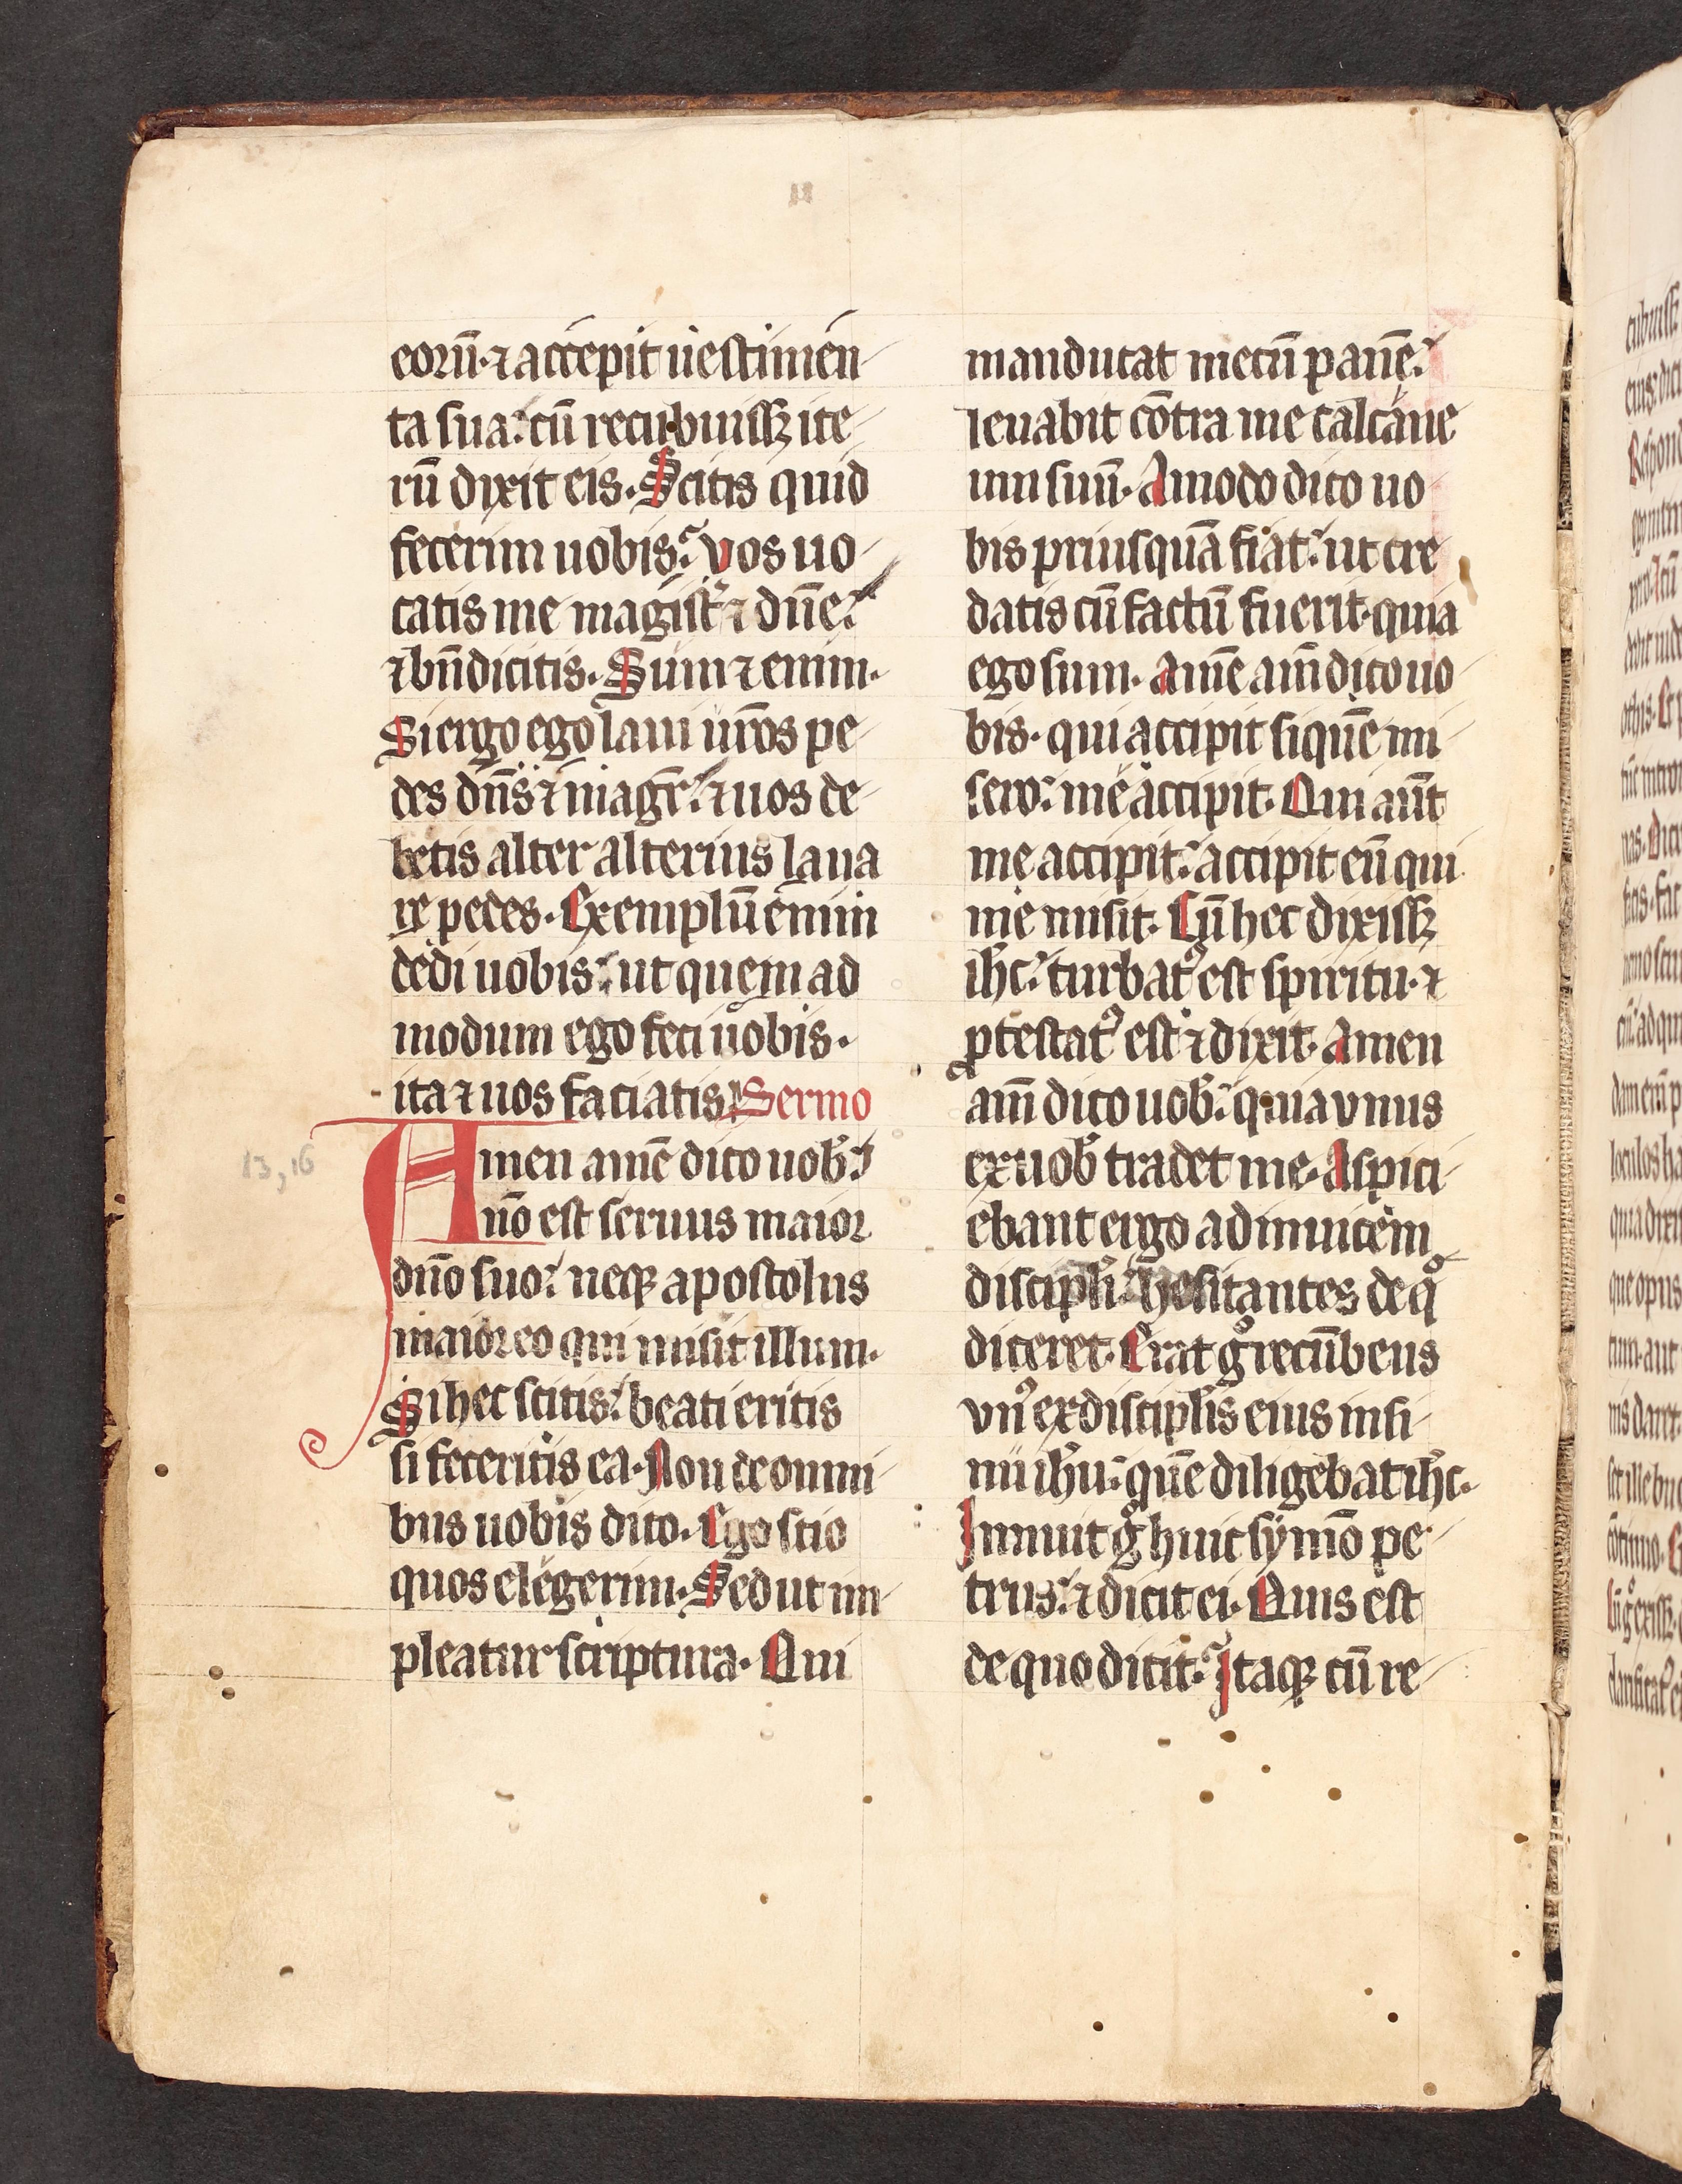 eorū· ⁊ accepit uestimen-
ta sua: cū recubuiſſꝫ ite-
rū dixit eis. Scitis quid
fecerim uobis? Vos uo-
catis me magiſt̄ ⁊ dn̄e:
⁊ bn̄ dicitis. Sum etenim.
Si ergo ego laui ur̄os pe-
des dn̄s ⁊ magr̄: ⁊ uos de-
betis alter alterius laua
re pedes. Exemplū enim
dedi uobis: ut quem ad
modum ego feci uobis.
ita ⁊ uos faciatis. Sermo
Amen amē dico uob̄:
nō est seruus maior
dn̄o suo: neqꝫ apostolus
maior eo qui misit illum.
Si hec scitis: beati eritis
si feceritis ea. Non de omni-
bus uobis dico. Ego scio
quos elegerim. Sed ut im-
pleatur scriptura. Qui
13,16
manducat mecū panē:
leuabit cōtra me calcane
um suū. Amodo dico uo
bis priusquā fiat: ut cre
datis cū factū fuerit· quia
ego sum. Amē am̄ dico uo-
bis. qui accipit si quē mi-
sero: me accipit. Qui aūt
me accipit: accipit eū qui
me misit. Cū hec dixiſſꝫ
ih̄c: turbatꝰ est spiritu· ⁊
ꝓtestatꝰ est ⁊ dixit. Amen
am̄ dico uob̄: quia vnus
ex uob̄ tradet me. Aspici-
ebant ergo ad inuicem
discipl̄i: hesitantes de qͦ
diceret. Erat gͦ recūbens
vnꝰ ex discipl̄is eius in si-
nu ih̄u: quē diligebat ih̄c.
Innuit gͦ huic symō pe-
trus: ⁊ dicit ei. Quis est
de quo dicit? Itaqꝫ cū re-